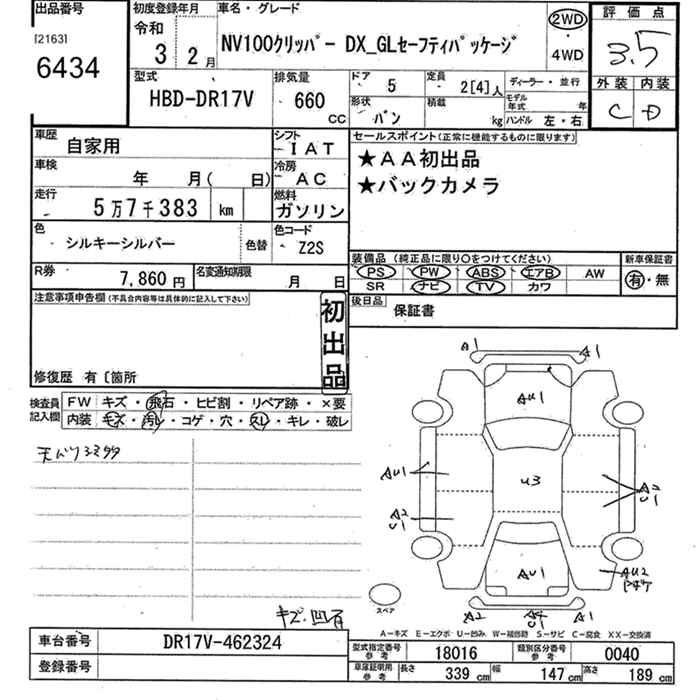 出品番号
[2163]
6434
初度登録年月
令和
3 2月
車名・グレード
NV100クリッパー DX_GLセーフティパッケージ
2WD
・
4WD
評価点
3.5
外装 内装
C D
型式
HBD-DR17V
排気量
660
CC
ドア 5
定員 2[4]人
形状 バン
積載 kg
ディーラー・並行
モデル年式 年
ハンドル 左・右
車歴 自家用
シフト
IAT
車検 年 月( 日)
冷房
AC
走行 5万7千383 km
燃料
ガソリン
色 シルキーシルバー 色替
色コード
Z2S
R券 7,860円
名変通知期限 月 日
セールスポイント(正常に機能するものに限ります)
★AA初出品
★バックカメラ
装備品 (純正品に限り〇をつけてください)
PS PW ABS エアB AW
SR ナビ TV カワ
新車保証書
有・無
後日品 保証書
注意事項申告欄(不具合内容等は具体的に記入して下さい)
初出品
修復歴 有〔箇所
検査員記入欄
FW キズ・飛石・ヒビ割・リペア跡・×要
内装 キズ・汚レ・コゲ・穴・スレ・キレ・破レ
キズ・凹有
A1 A1
AU1
AU1
U3
A2
U1
A2
U1
AU1
AU2
スペア
A2
U1
A2
A-キズ E-エクボ U-凹み W-補修跡 S-サビ C-腐食 XX-交換済
車台番号 DR17V-462324
登録番号
型式指定番号参考 18016
類別区分番号参考 0040
車庫証明用参考 長さ 339 cm 幅 147 cm 高さ 189 cm